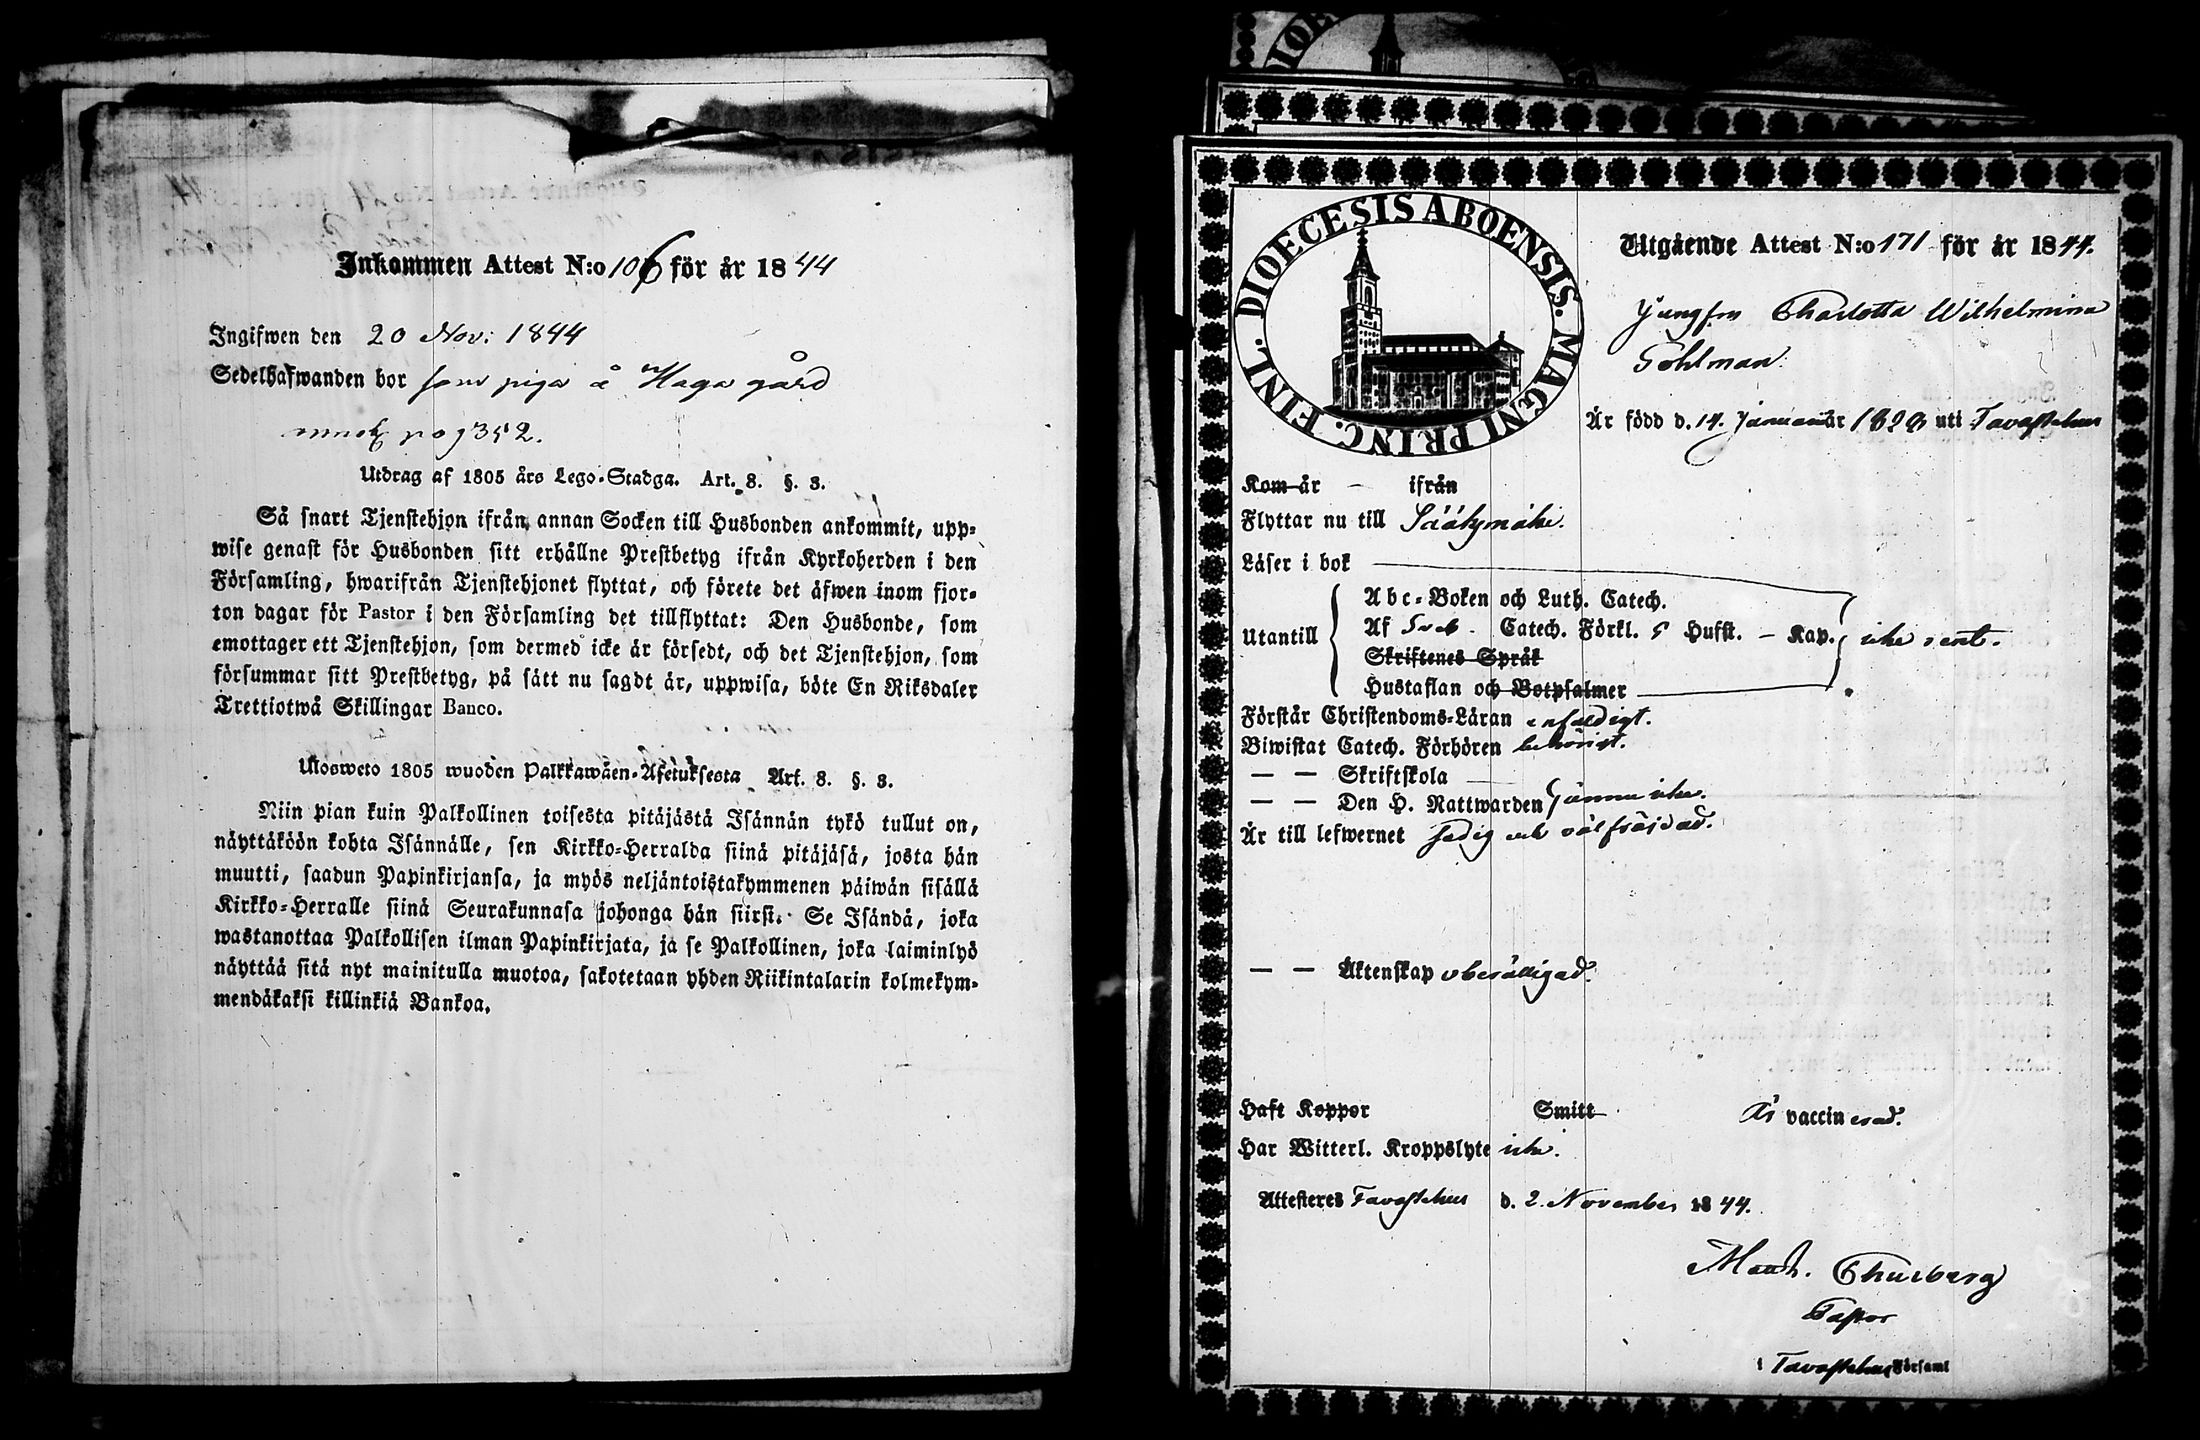 Inkommen Attest N:o 106 för år 1844
Ingifwen den 20 Nov: 1844
Sedelhafwanden bor som piga å Haga gård
pag 352.
Utdrag af 1805 års Lego-Stadga. Art. 8. §. 3.
Så snart Tjenstehjon ifrån annan Socken till Husbonden ankommit, upp-
wise genast för Husbonden sitt erhållne Prestbetyg ifrån Kyrkoherden i den
Församling, hwarifrån Tjenstehjonet flyttat, och förete det äfwen inom fjor-
ton dagar för Pastor i den Församling det tillflyttat: Den Husbonde, som
emottager ett Tjenstehjon, som dermed icke är försedt, och det Tjenstehjon, som
försummar sitt Prestbetyg, på sätt nu sagdt är, uppwisa, böte En Riksdaler
Trettiotwå Skillingar Banco.
Ulosweto 1805 wuoden Palkkawäen-Asetuksesta Art. 8. §. 3.
Niin pian kuin Palkollinen toisesta pitäjästä Isännän tykö tullut on,
näyttäköön kohta Isännälle, sen Kirkko-Herralda siinä pitäjäsä, josta hän
muutti, saadun Papinkirjansa, ja myös neljäntoistakymmenen päiwän sisällä
Kirkko-Herralle siinä Seurakunnasa johonga hän siirsi. Se Isändä, joka
wastanottaa Palkollisen ilman Papinkirjata, ja se Palkollinen, joka laiminlyö
näyttää sitä nyt mainitulla muotoa, sakotetaan yhden Riikintalarin kolmekym-
mendäkaksi killinkiä Bankoa.
DIOECESIS ABOENSIS. MAGNI PRINC. FINL.
Utgående Attest N:o 171 för år 1844.
Jungfru Charlotta Wilhelmina
Fohlman.
Är född d. 14. Januarii år 1828 uti Tavastehus
Kom år - ifrån
Flyttar nu till Sääksmäki.
Läser i bok
Abc-Boken och Luth. Catech.
Utantill Af Sveb. Catech. Förkl. 5 Hufst. - Kap. icke rent.
Skriftenes Språk
Hustaflan och Botpsalmer
Förstår Christendoms-Läran enfaldigt.
Biwistat Catech. Förhören behörigt.
— — Skriftskola
— — Den H. Nattwarden jämnn icke.
Är till lefwernet sedig och välfräjdad.
— — Äktenskap obesälligad.
Haft Koppor Smitt Är vaccinerad.
Har Witterl. Kroppslyte icke.
Attesteres Tavastehus d. 2. November 1844.
Churberg
Pastor
i Tavastehus Församl